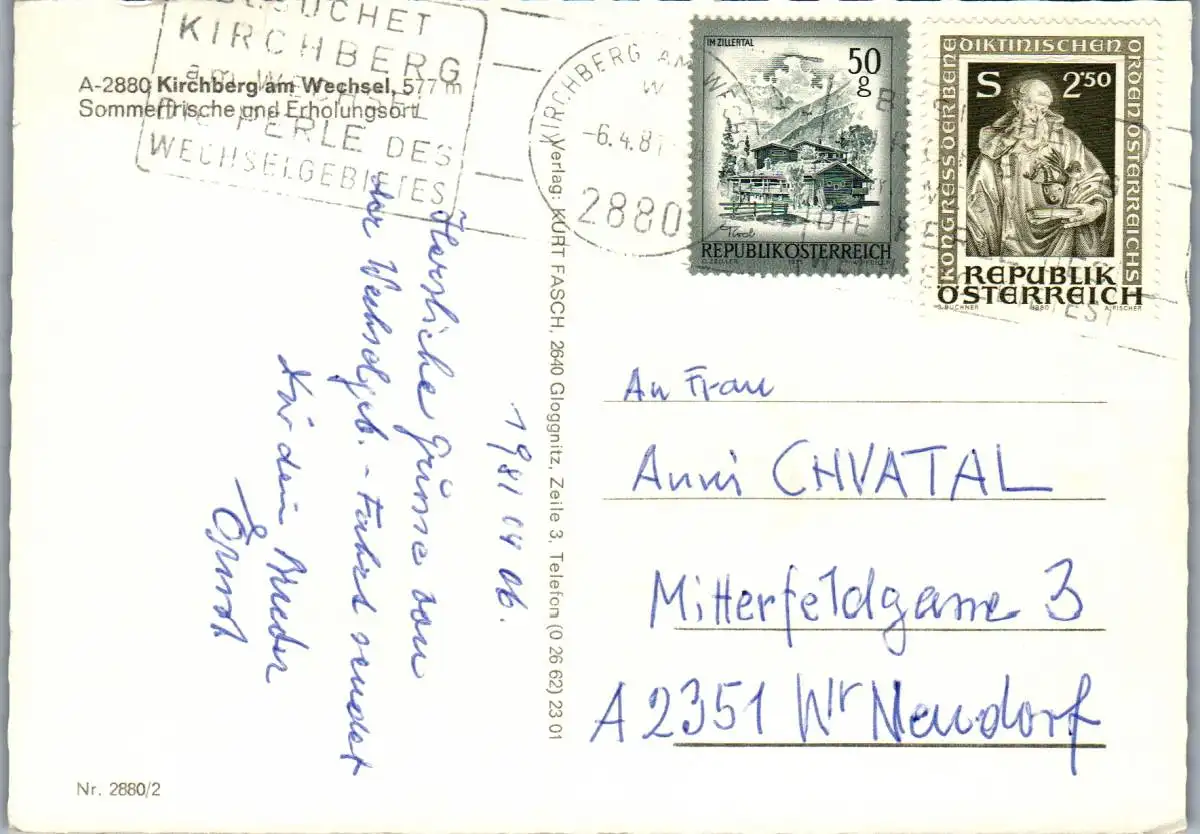 BESUCHET
KIRCHBERG
am WECHSEL
DIE PERLE DES
WECHSELGEBIETES
A-2880 Kirchberg am Wechsel, 577 m
Sommerfrische und Erholungsort
KIRCHBERG AM WECHSEL
-6.4.81
2880
IM ZILLERTAL
50
g
Tirol
REPUBLIK ÖSTERREICH
KONGRESS DER BENEDIKTINISCHEN ORDEN ÖSTERREICHS
S 2·50
REPUBLIK
ÖSTERREICH
1980 A. PISCHER
Verlag: KURT FASCH, 2640 Gloggnitz, Zeile 3, Telefon (0 26 62) 23 01
1981 04 06.
Herzliche Grüsse von
der Wechselgeb. - Fahrt sendet
Dir dein Bruder
Ernst
An Frau
Anni CHVATAL
Mitterfeldgasse 3
A 2351 Wr Neudorf
Nr. 2880/2